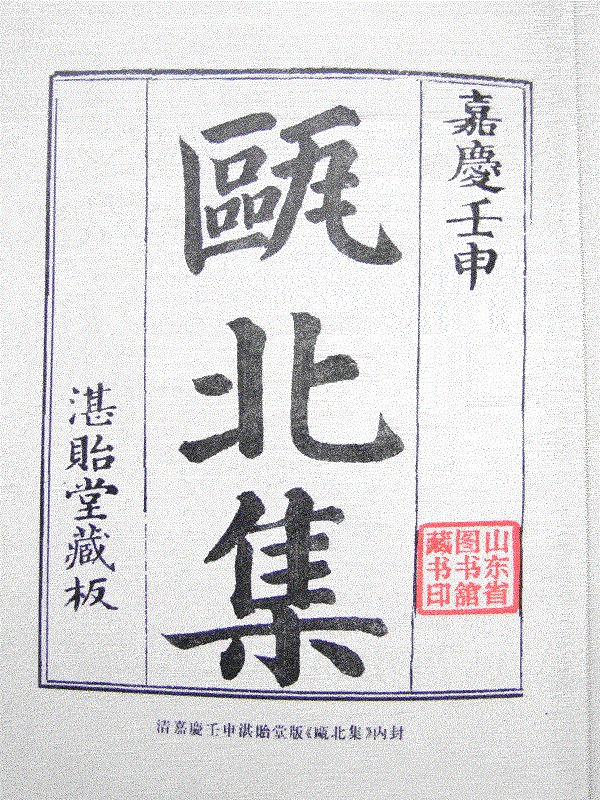 嘉慶壬申
甌北集
湛貽堂藏板
山东省
图书舘
藏书印
清嘉慶壬申湛貽堂版《甌北集》内封